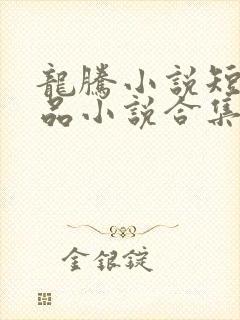 龍騰小說短
品小說合集
金銀錠